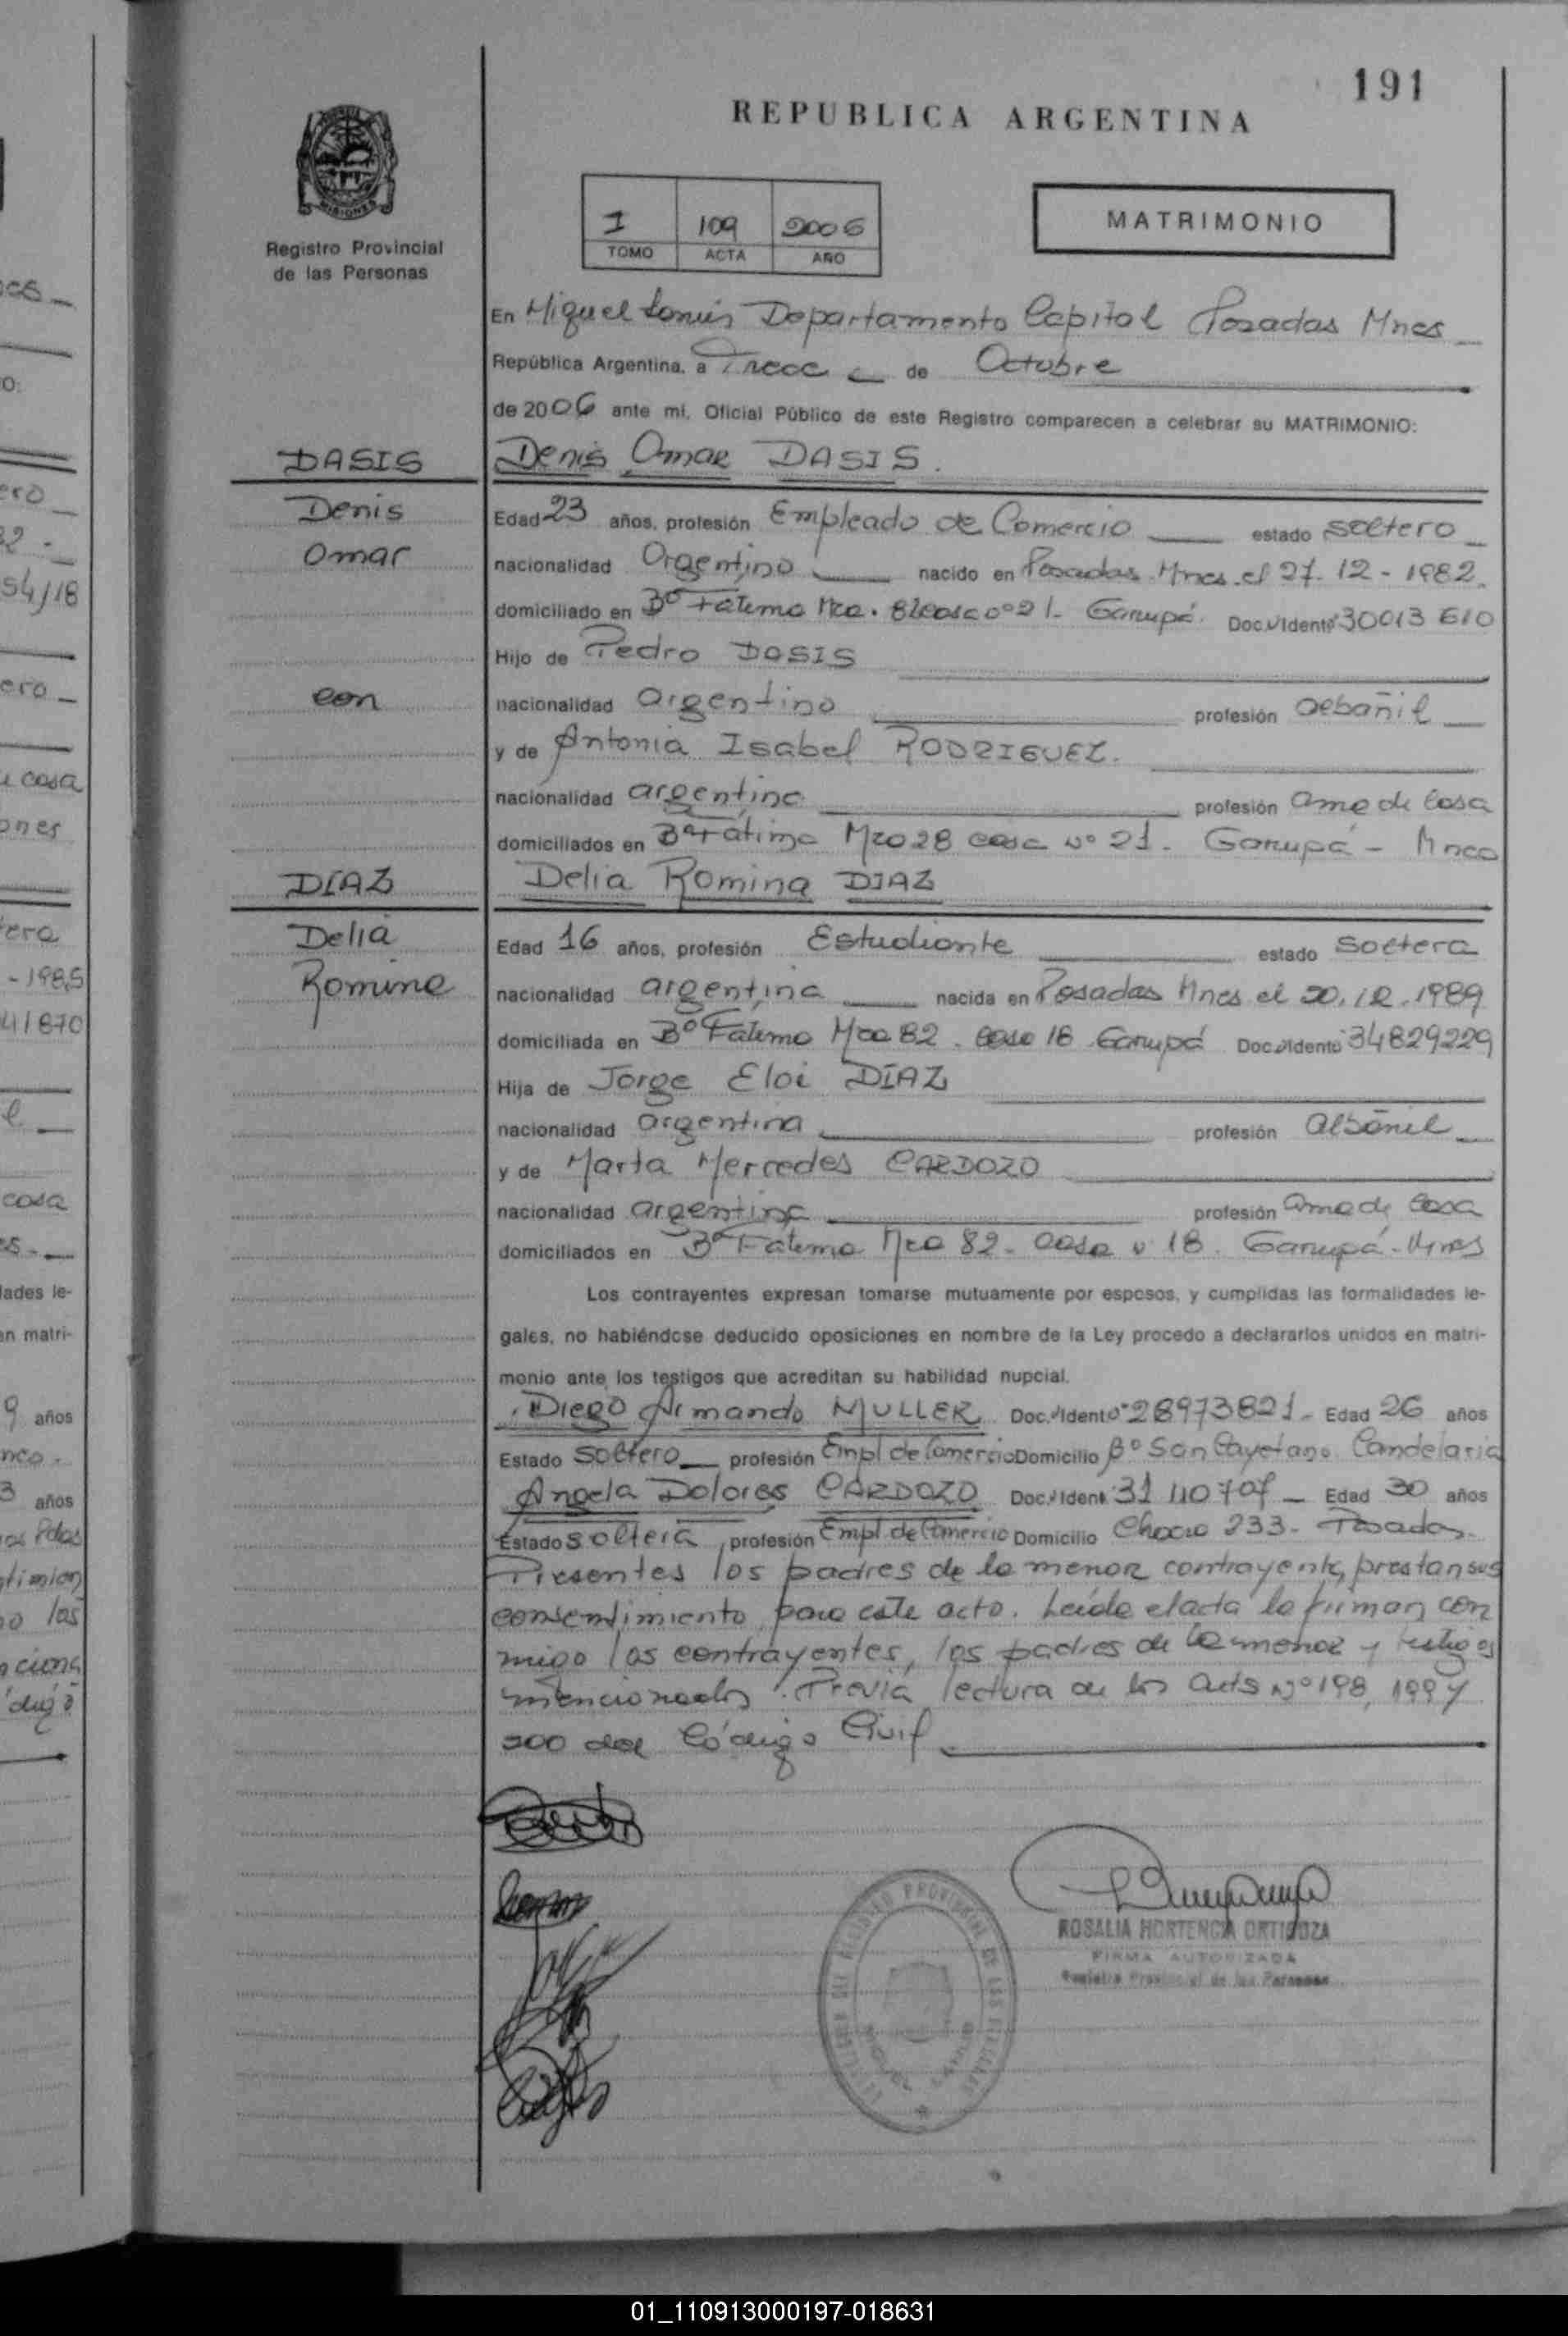 191
REPUBLICA ARGENTINA
MISIONES
Registro Provincial
de las Personas
I 109 2006
TOMO ACTA AÑO
MATRIMONIO
En Miguel Lanús Departamento Capital Posadas Mnes
República Argentina, a Trece de Octubre
de 2006 ante mí, Oficial Público de este Registro comparecen a celebrar su MATRIMONIO:
DASIS
Denis Omar DASIS.
Denis
Omar
Edad 23 años, profesión Empleado de Comercio estado soltero
nacionalidad Argentino nacido en Posadas Mnes el 27-12-1982.
domiciliado en Bº Fátima Mza. casa nº 21- Garupá. Doc. Ident. 30013610
Hijo de Pedro DASIS
con
nacionalidad argentino profesión albañil
y de Antonia Isabel RODRIGUEZ.
nacionalidad argentina profesión ama de casa
domiciliados en Bº Fátima Mza 28 casa nº 21. Garupá - Mnes
DIAZ
Delia Romina DIAZ
Delia
Romina
Edad 16 años, profesión Estudiante estado soltera
nacionalidad argentina nacida en Posadas Mnes el 20.12.1989
domiciliada en Bº Fátima Mza 82. casa 18 Garupá Doc. Ident. 34829229
Hija de Jorge Eloi DÍAZ
nacionalidad argentina profesión albañil
y de Marta Mercedes CARDOZO
nacionalidad argentina profesión ama de casa
domiciliados en Bº Fátima Mza 82- casa 18. Garupá - Mnes
Los contrayentes expresan tomarse mutuamente por esposos, y cumplidas las formalidades le-
gales, no habiéndose deducido oposiciones en nombre de la Ley procedo a declararlos unidos en matri-
monio ante los testigos que acreditan su habilidad nupcial.
Diego Armando MULLER Doc. Ident. 28973821- Edad 26 años
Estado soltero profesión Empl de Comercio Domicilio Bº San Cayetano Candelaria
Angela Dolores CARDOZO Doc. Ident. 31110707 - Edad 30 años
Estado soltera, profesión Empl. de Comercio Domicilio 233- Posadas.
Presentes los padres de la menor contrayente, prestan sus
consentimiento para este acto. Leída el acta la firman con
migo los contrayentes, los padres de la menor y testigos
mencionados. Previa lectura de los arts Nº 198, 199 y
200 del Código Civil
ROSALIA HORTENCIA ORTIGOZA
FIRMA AUTORIZADA
Registro Provincial de las Personas
01_110913000197-018631